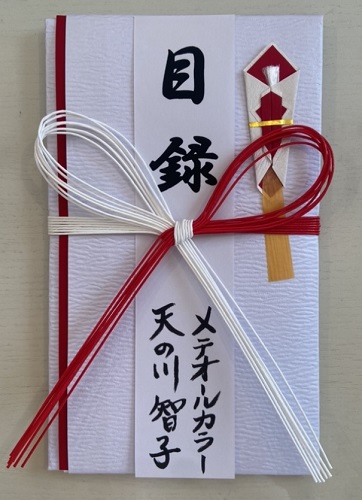 目録
メテオールカラー
天の川智子